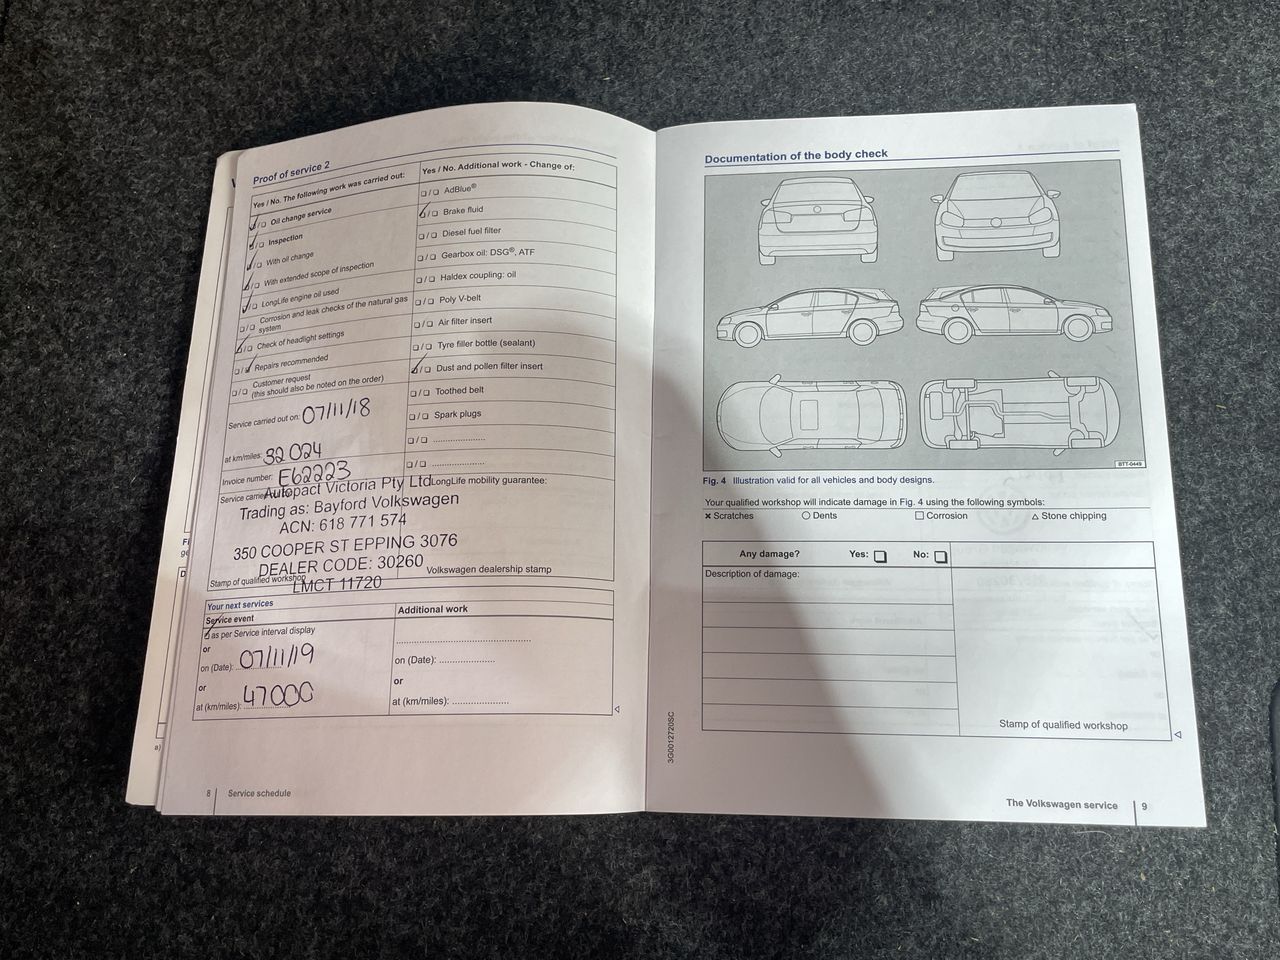 Proof of service 2
Yes / No. The following work was carried out:
Oil change service
Inspection
With oil change
With extended scope of inspection
LongLife engine oil used
Corrosion and leak checks of the natural gas
system
Check of headlight settings
Repairs recommended
Customer request
(this should also be noted on the order)
Service carried out on: 07/11/18
at km/miles: 32024
Invoice number: E62223
Service carried
Autopact Victoria Pty Ltd
Trading as: Bayford Volkswagen
ACN: 618 771 574
350 COOPER ST EPPING 3076
DEALER CODE: 30260
LMCT 11720
Stamp of qualified workshop
Yes / No. Additional work - Change of:
AdBlue®
Brake fluid
Diesel fuel filter
Gearbox oil: DSG®, ATF
Haldex coupling: oil
Poly V-belt
Air filter insert
Tyre filler bottle (sealant)
Dust and pollen filter insert
Toothed belt
Spark plugs
LongLife mobility guarantee:
Volkswagen dealership stamp
Your next services
Service event
as per Service interval display
or
on (Date): 07/11/19
or
at (km/miles): 47000
Additional work
on (Date):
or
at (km/miles):
8 Service schedule
Documentation of the body check
BTT-0449
Fig. 4 Illustration valid for all vehicles and body designs.
Your qualified workshop will indicate damage in Fig. 4 using the following symbols:
× Scratches ○ Dents □ Corrosion △ Stone chipping
Any damage? Yes: No:
Description of damage:
Stamp of qualified workshop
3G0012720SC
The Volkswagen service 9